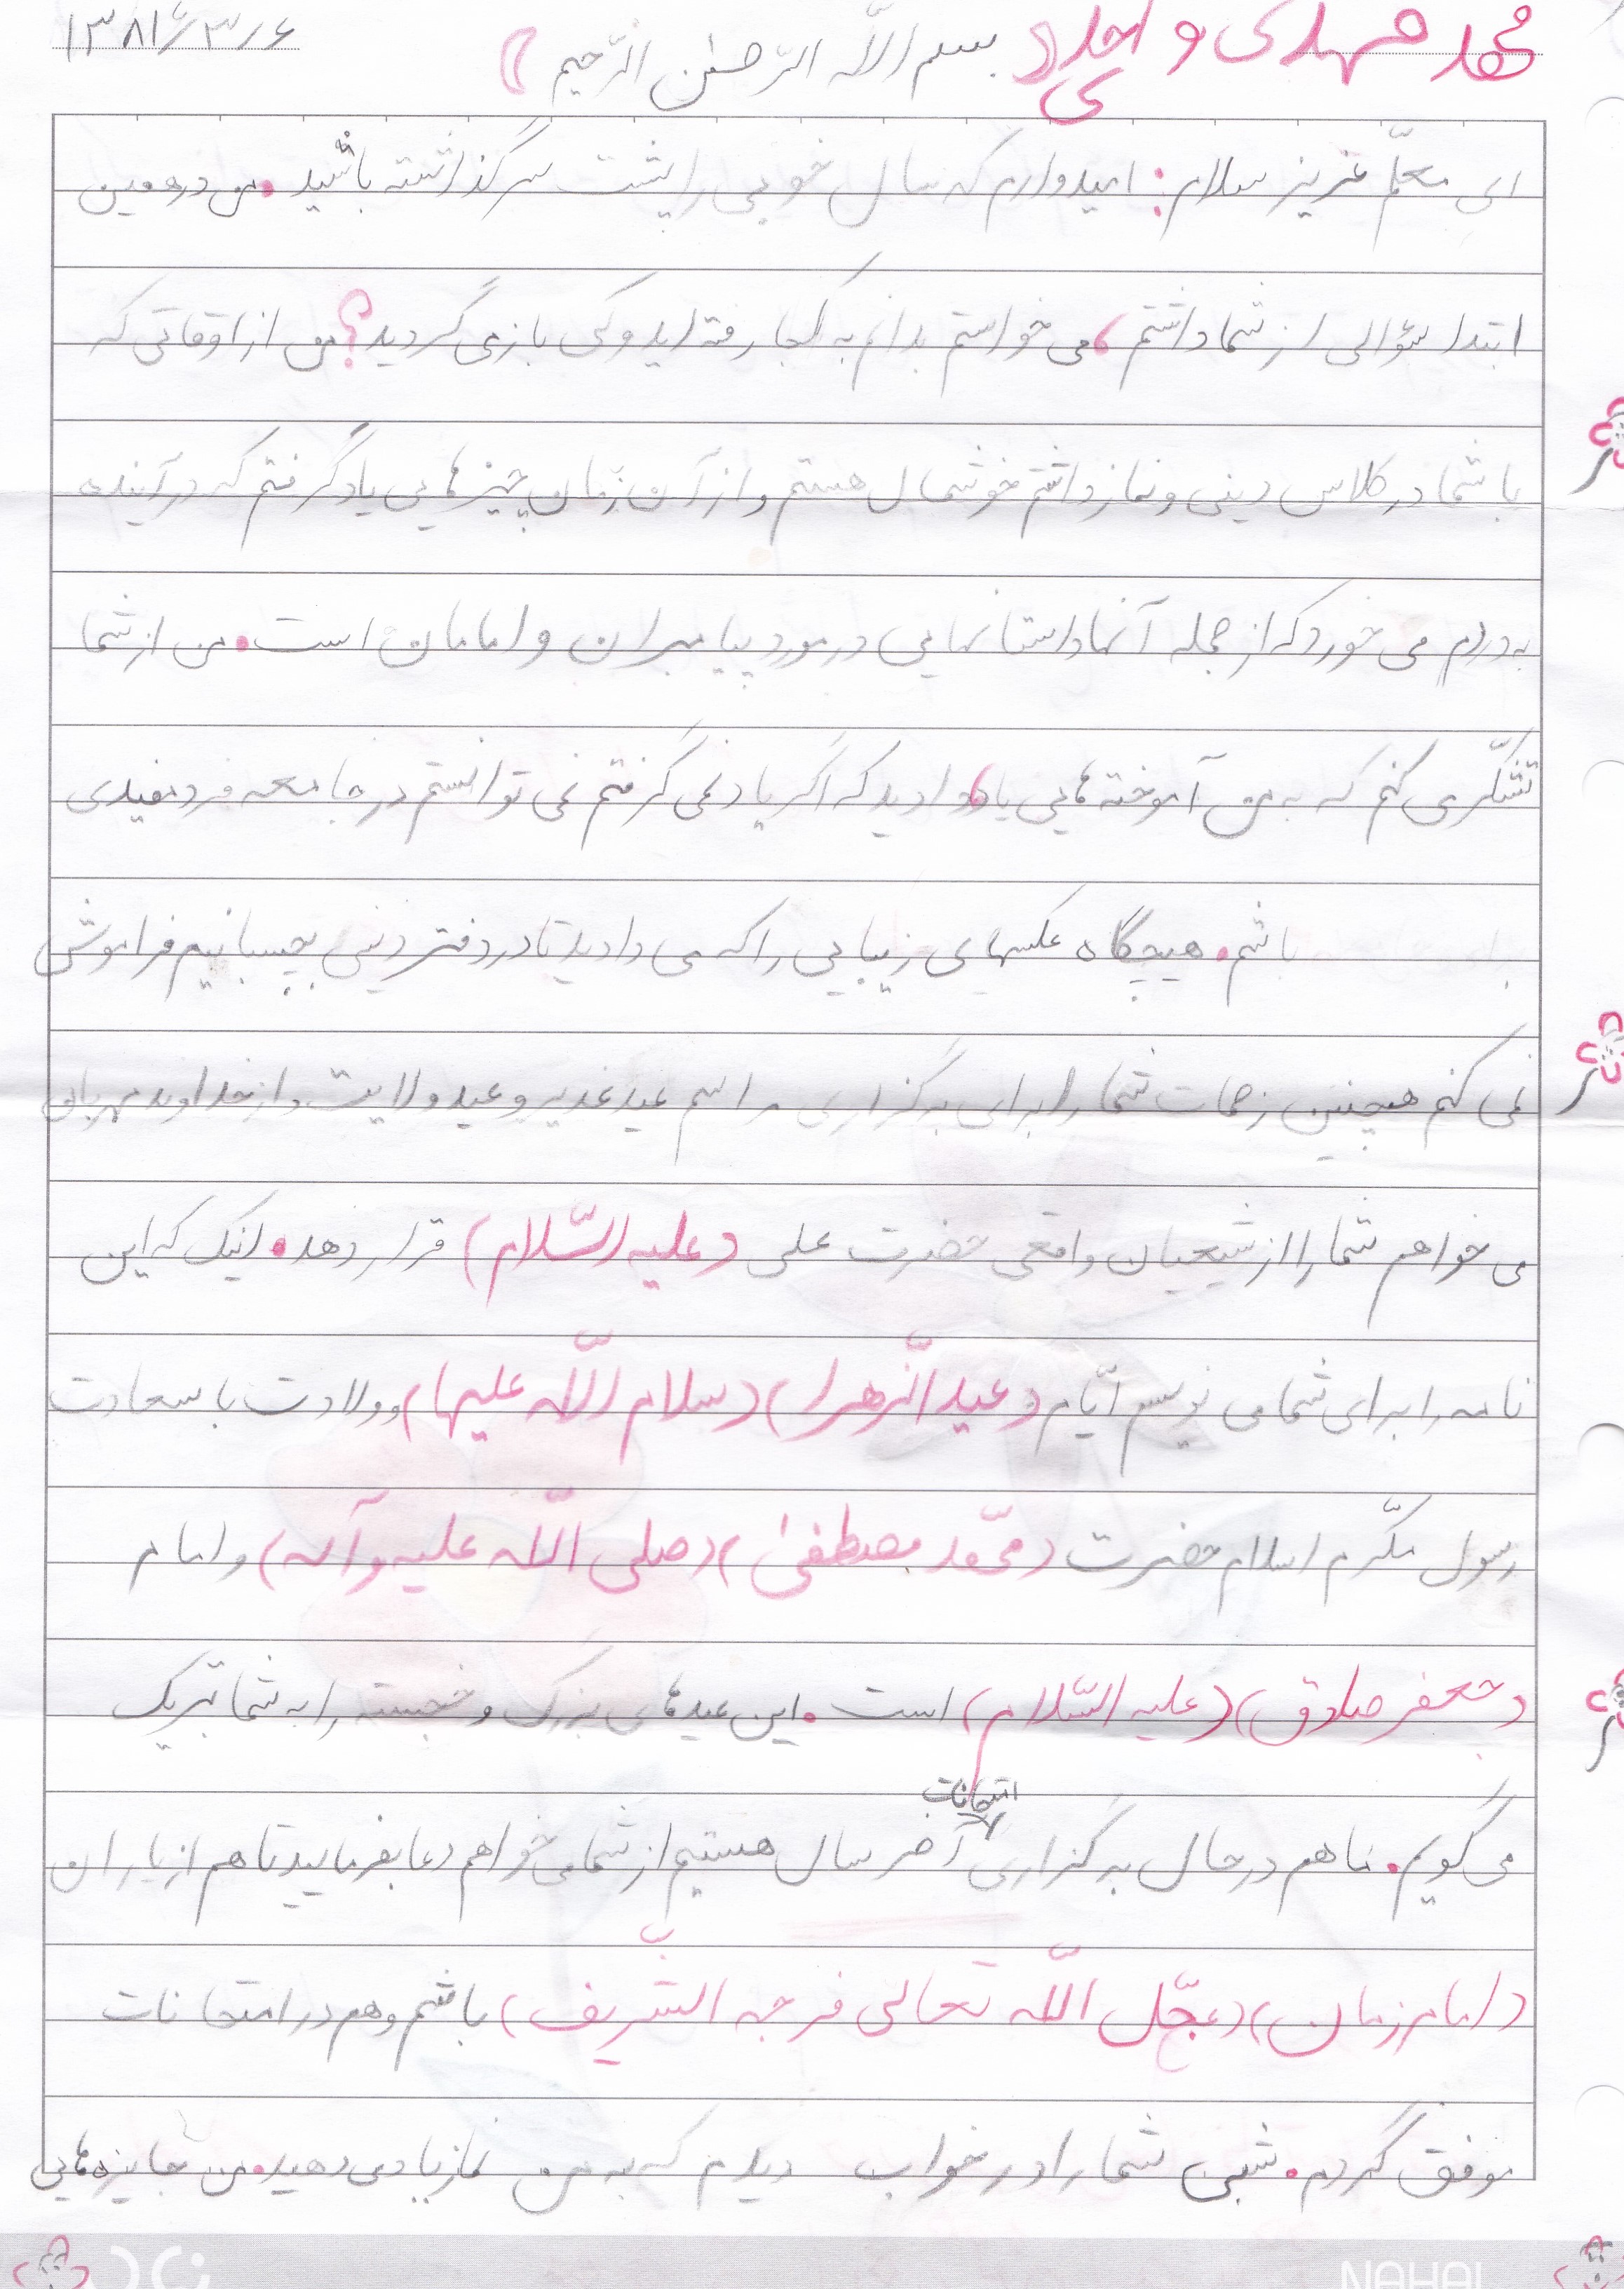 محمد مهدی واحدی (بسم اللّه الرّحمن الرّحیم) ۱۳۸۱/۳/۶
ای معلّم عزیز سلام: امیدوارم که سال خوبی را پشت سر گذاشته باشید. من در همین
ابتدا سؤالی از شما داشتم، می خواستم بدانم به کجا رفته اید و کی بازمی گردید؟ من از اوقاتی که
با شما در کلاس دینی و نماز داشتم خوشحال هستم و از آن زمان چیزهایی یاد گرفتم که در آینده
به دردم می خورد که از جمله آنها داستانهایی در مورد پیامبران و امامان است. من از شما
تشکّر می کنم که به من آموخته هایی یاد دادید که اگر یاد نمی گرفتم نمی توانستم در جامعه فرد مفیدی
باشم. هیچگاه عکسهای زیبایی را که می دادید تا در دفتر دینی بچسبانیم فراموش
نمی کنم همچنین زحمات شما را برای برگزاری مراسم عید غدیر و عید ولایت و از خداوند مهربان
می خواهم شما را از شیعیان واقعی حضرت علی (علیه السّلام) قرار دهد. اینک که این
نامه را برای شما می نویسم ایّام (عید الزّهرا) (سلام اللّه علیها) و ولادت با سعادت
رسول مکرّم اسلام حضرت (محمّد مصطفیٰ) (صلی اللّه علیه و آله) و امام
(جعفر صادق) (علیه السّلام) است. این عیدهای بزرگ و خجسته را به شما تبریک
می گویم. ما هم در حال برگزاری امتحانات آخر سال هستیم از شما می خواهم دعا بفرمایید تا هم از یاران
(امام زمان) (عجّل اللّه تعالی فرجه الشّریف) باشم و هم در امتحانات
موفق گردم. شبی شما را در خواب دیدم که به من نماز یاد می دهید. من جایزه هایی
NAHAL